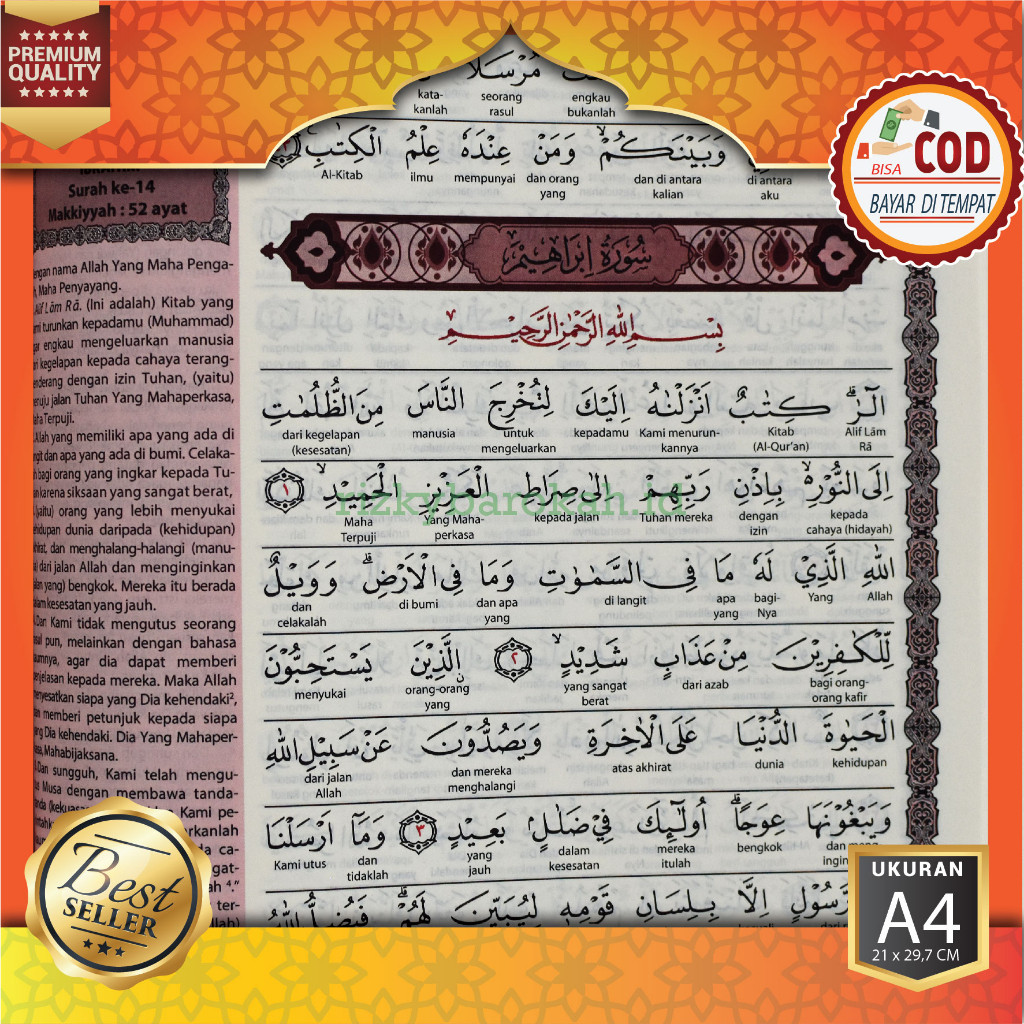 PREMIUM
QUALITY
BISA COD
BAYAR DI TEMPAT
مُرْسَلًا
kata-
kanlah
seorang
rasul
engkau
bukanlah
وَبَيْنَكُمْۙ وَمَنْ عِنْدَهٗ عِلْمُ الْكِتٰبِ
di antara
aku
dan di antara
kalian
dan orang
yang
mempunyai
ilmu
Al-Kitab
Surah ke-14
Makkiyyah : 52 ayat
سُوْرَةُ اِبْرَاهِيْمَ
بِسْمِ اللّٰهِ الرَّحْمٰنِ الرَّحِيْمِ
الۤرٰۗ كِتٰبٌ اَنْزَلْنٰهُ اِلَيْكَ لِتُخْرِجَ النَّاسَ مِنَ الظُّلُمٰتِ
Alif Lām
Rā
Kitab
(Al-Qur'an)
Kami menurun-
kannya
kepadamu
untuk
mengeluarkan
manusia
dari kegelapan
(kesesatan)
اِلَى النُّوْرِ ەۙ بِاِذْنِ رَبِّهِمْ اِلٰى صِرَاطِ الْعَزِيْزِ الْحَمِيْدِۙ ١
kepada
cahaya (hidayah)
dengan
izin
Tuhan mereka
kepada jalan
Yang Maha-
perkasa
Maha
Terpuji
rizkybarokah.id
اللّٰهِ الَّذِيْ لَهٗ مَا فِى السَّمٰوٰتِ وَمَا فِى الْاَرْضِۗ وَوَيْلٌ
Allah
Yang
bagi-
Nya
apa
yang
di langit
dan apa
yang
di bumi
dan
celakalah
لِّلْكٰفِرِيْنَ مِنْ عَذَابٍ شَدِيْدٍۙ ٢ ۨالَّذِيْنَ يَسْتَحِبُّوْنَ
bagi orang-
orang kafir
dari azab
yang sangat
berat
orang-orang
yang
menyukai
الْحَيٰوةَ الدُّنْيَا عَلَى الْاٰخِرَةِ وَيَصُدُّوْنَ عَنْ سَبِيْلِ اللّٰهِ
kehidupan
dunia
atas akhirat
dan mereka
menghalangi
dari jalan
Allah
وَيَبْغُوْنَهَا عِوَجًاۗ اُولٰۤىِٕكَ فِيْ ضَلٰلٍۢ بَعِيْدٍ ٣ وَمَآ اَرْسَلْنَا
bengkok
mereka
itulah
dalam
kesesatan
yang
jauh
dan
tidaklah
Kami utus
اِلَّا بِلِسَانِ قَوْمِهٖ لِيُبَيِّنَ لَهُمْۗ فَيُضِلُّ اللّٰهُ
nama Allah Yang Maha Penga-
Maha Penyayang.
Alif Lām Rā. (Ini adalah) Kitab yang
turunkan kepadamu (Muhammad)
engkau mengeluarkan manusia
kegelapan kepada cahaya terang-
dengan izin Tuhan, (yaitu)
jalan Tuhan Yang Mahaperkasa,
Terpuji.
Allah yang memiliki apa yang ada di
dan apa yang ada di bumi. Celaka-
bagi orang yang ingkar kepada Tu-
karena siksaan yang sangat berat,
(yaitu) orang yang lebih menyukai
dunia daripada (kehidupan)
dan menghalang-halangi (manu-
dari jalan Allah dan menginginkan
bengkok. Mereka itu berada
kesesatan yang jauh.
Dan Kami tidak mengutus seorang
pun, melainkan dengan bahasa
agar dia dapat memberi
kepada mereka. Maka Allah
siapa yang Dia kehendaki²,
memberi petunjuk kepada siapa
Dia kehendaki. Dia Yang Mahaper-
Mahabijaksana.
Dan sungguh, Kami telah mengu-
Musa dengan membawa tanda-
Kami pe-
Best
SELLER
UKURAN
A4
21 x 29,7 CM